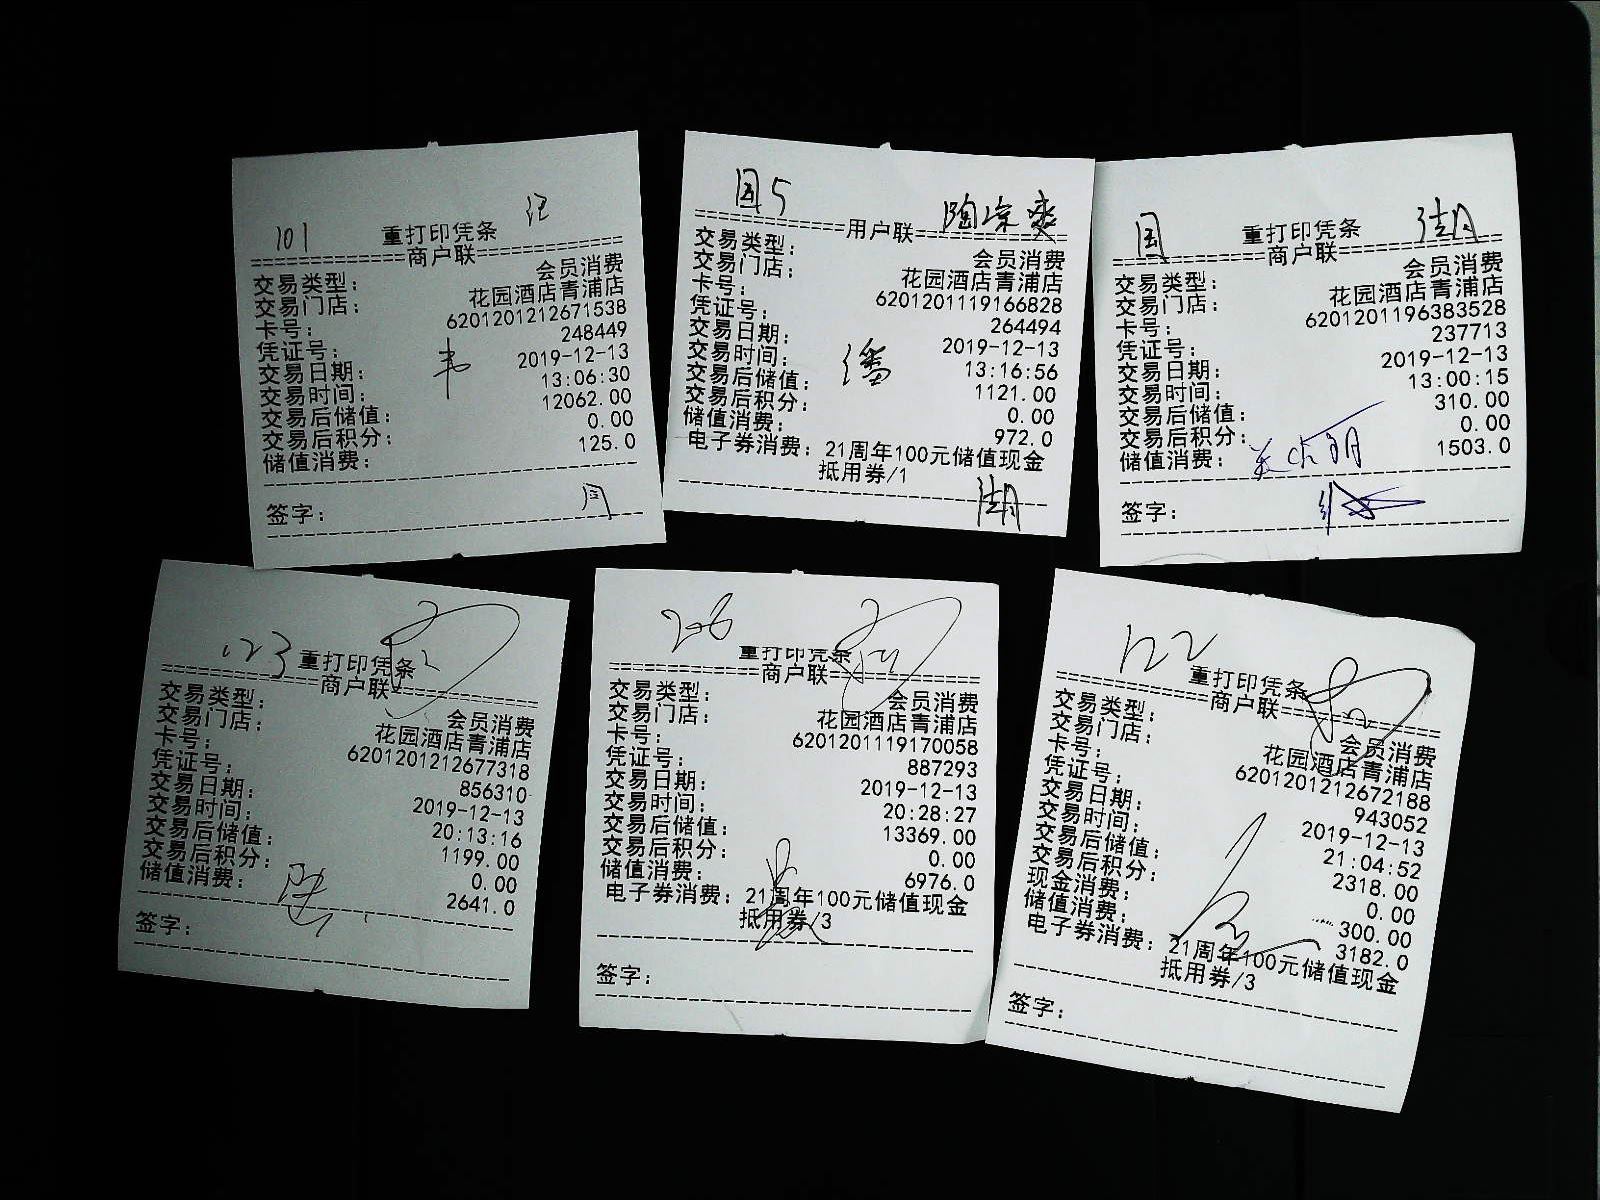 101
重打印凭条
商户联
交易类型： 会员消费
交易门店： 花园酒店青浦店
卡号： 6201201212671538
凭证号： 248449
交易日期： 2019-12-13
交易时间： 13:06:30
交易后储值： 12062.00
交易后积分： 0.00
储值消费： 125.0
签字：
用户联
交易类型： 会员消费
交易门店： 花园酒店青浦店
卡号： 6201201119166828
凭证号： 264494
交易日期： 2019-12-13
交易时间： 13:16:56
交易后储值： 1121.00
交易后积分： 0.00
储值消费： 972.0
电子券消费：21周年100元储值现金
抵用券/1
重打印凭条
商户联
交易类型： 会员消费
交易门店： 花园酒店青浦店
卡号： 6201201196383528
凭证号： 237713
交易日期： 2019-12-13
交易时间： 13:00:15
交易后储值： 310.00
交易后积分： 0.00
储值消费： 1503.0
签字：
123
重打印凭条
商户联
交易类型： 会员消费
交易门店： 花园酒店青浦店
卡号： 6201201212677318
凭证号： 856310
交易日期： 2019-12-13
交易时间： 20:13:16
交易后储值： 1199.00
交易后积分： 0.00
储值消费： 2641.0
签字：
206
重打印凭条
商户联
交易类型： 会员消费
交易门店： 花园酒店青浦店
卡号： 6201201119170058
凭证号： 887293
交易日期： 2019-12-13
交易时间： 20:28:27
交易后储值： 13369.00
交易后积分： 0.00
储值消费： 6976.0
电子券消费：21周年100元储值现金
抵用券/3
签字：
122
重打印凭条
商户联
交易类型： 会员消费
交易门店： 花园酒店青浦店
卡号： 6201201212672188
凭证号： 943052
交易日期： 2019-12-13
交易时间： 21:04:52
交易后储值： 2318.00
交易后积分： 0.00
现金消费： 300.00
储值消费： 3182.0
电子券消费：21周年100元储值现金
抵用券/3
签字：